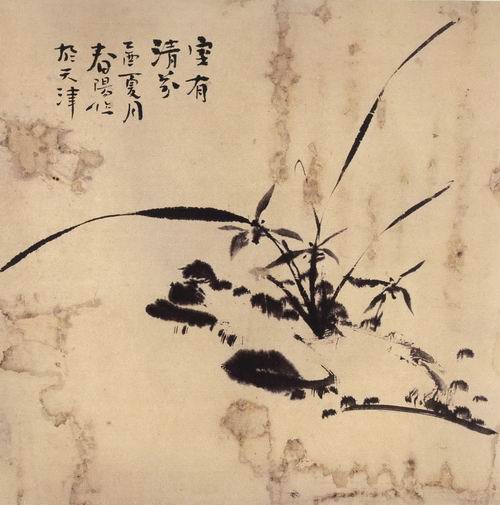 室有
清芬
酉夏月
春陽作
於天津